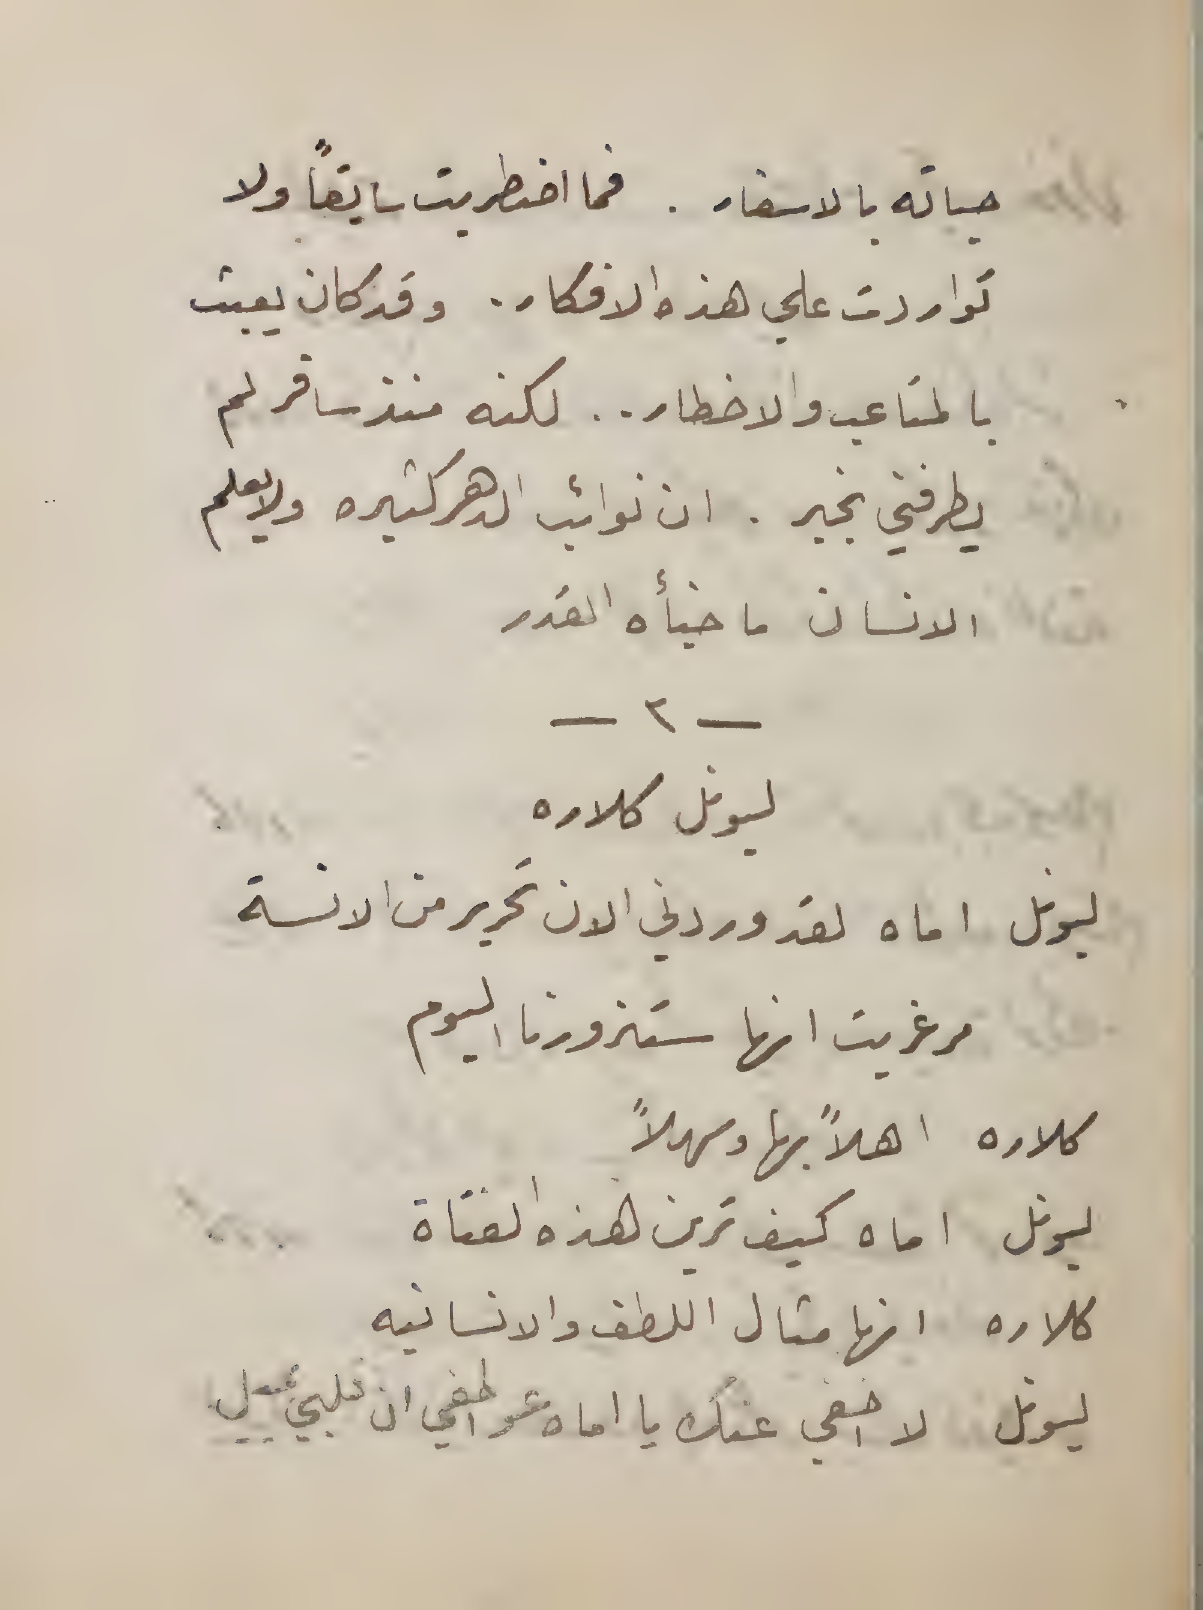 حياته بالاسفار . فما اضطربت سابقاً ولا
تواردت علي هذه الافكار . وقد كان يعبث
بالمتاعب والاخطار .. لكنه منذ سافر لم
يطرفني بخبر . ان نوائب الدهر كثيره ولا يعلم
الانسان ما خبأه القدر
— ٢ —
ليونل كلاره
ليونل اماه لقد وردني الان تحرير من الانسة
مرغريت انها ستزورنا اليوم
كلاره اهلاً بها وسهلاً
ليونل اماه كيف ترين هذه الفتاة
كلاره انها مثال اللطف والانسانيه
ليونل لا اخفي عنك يا اماه عواطفي ان قلبي يميل